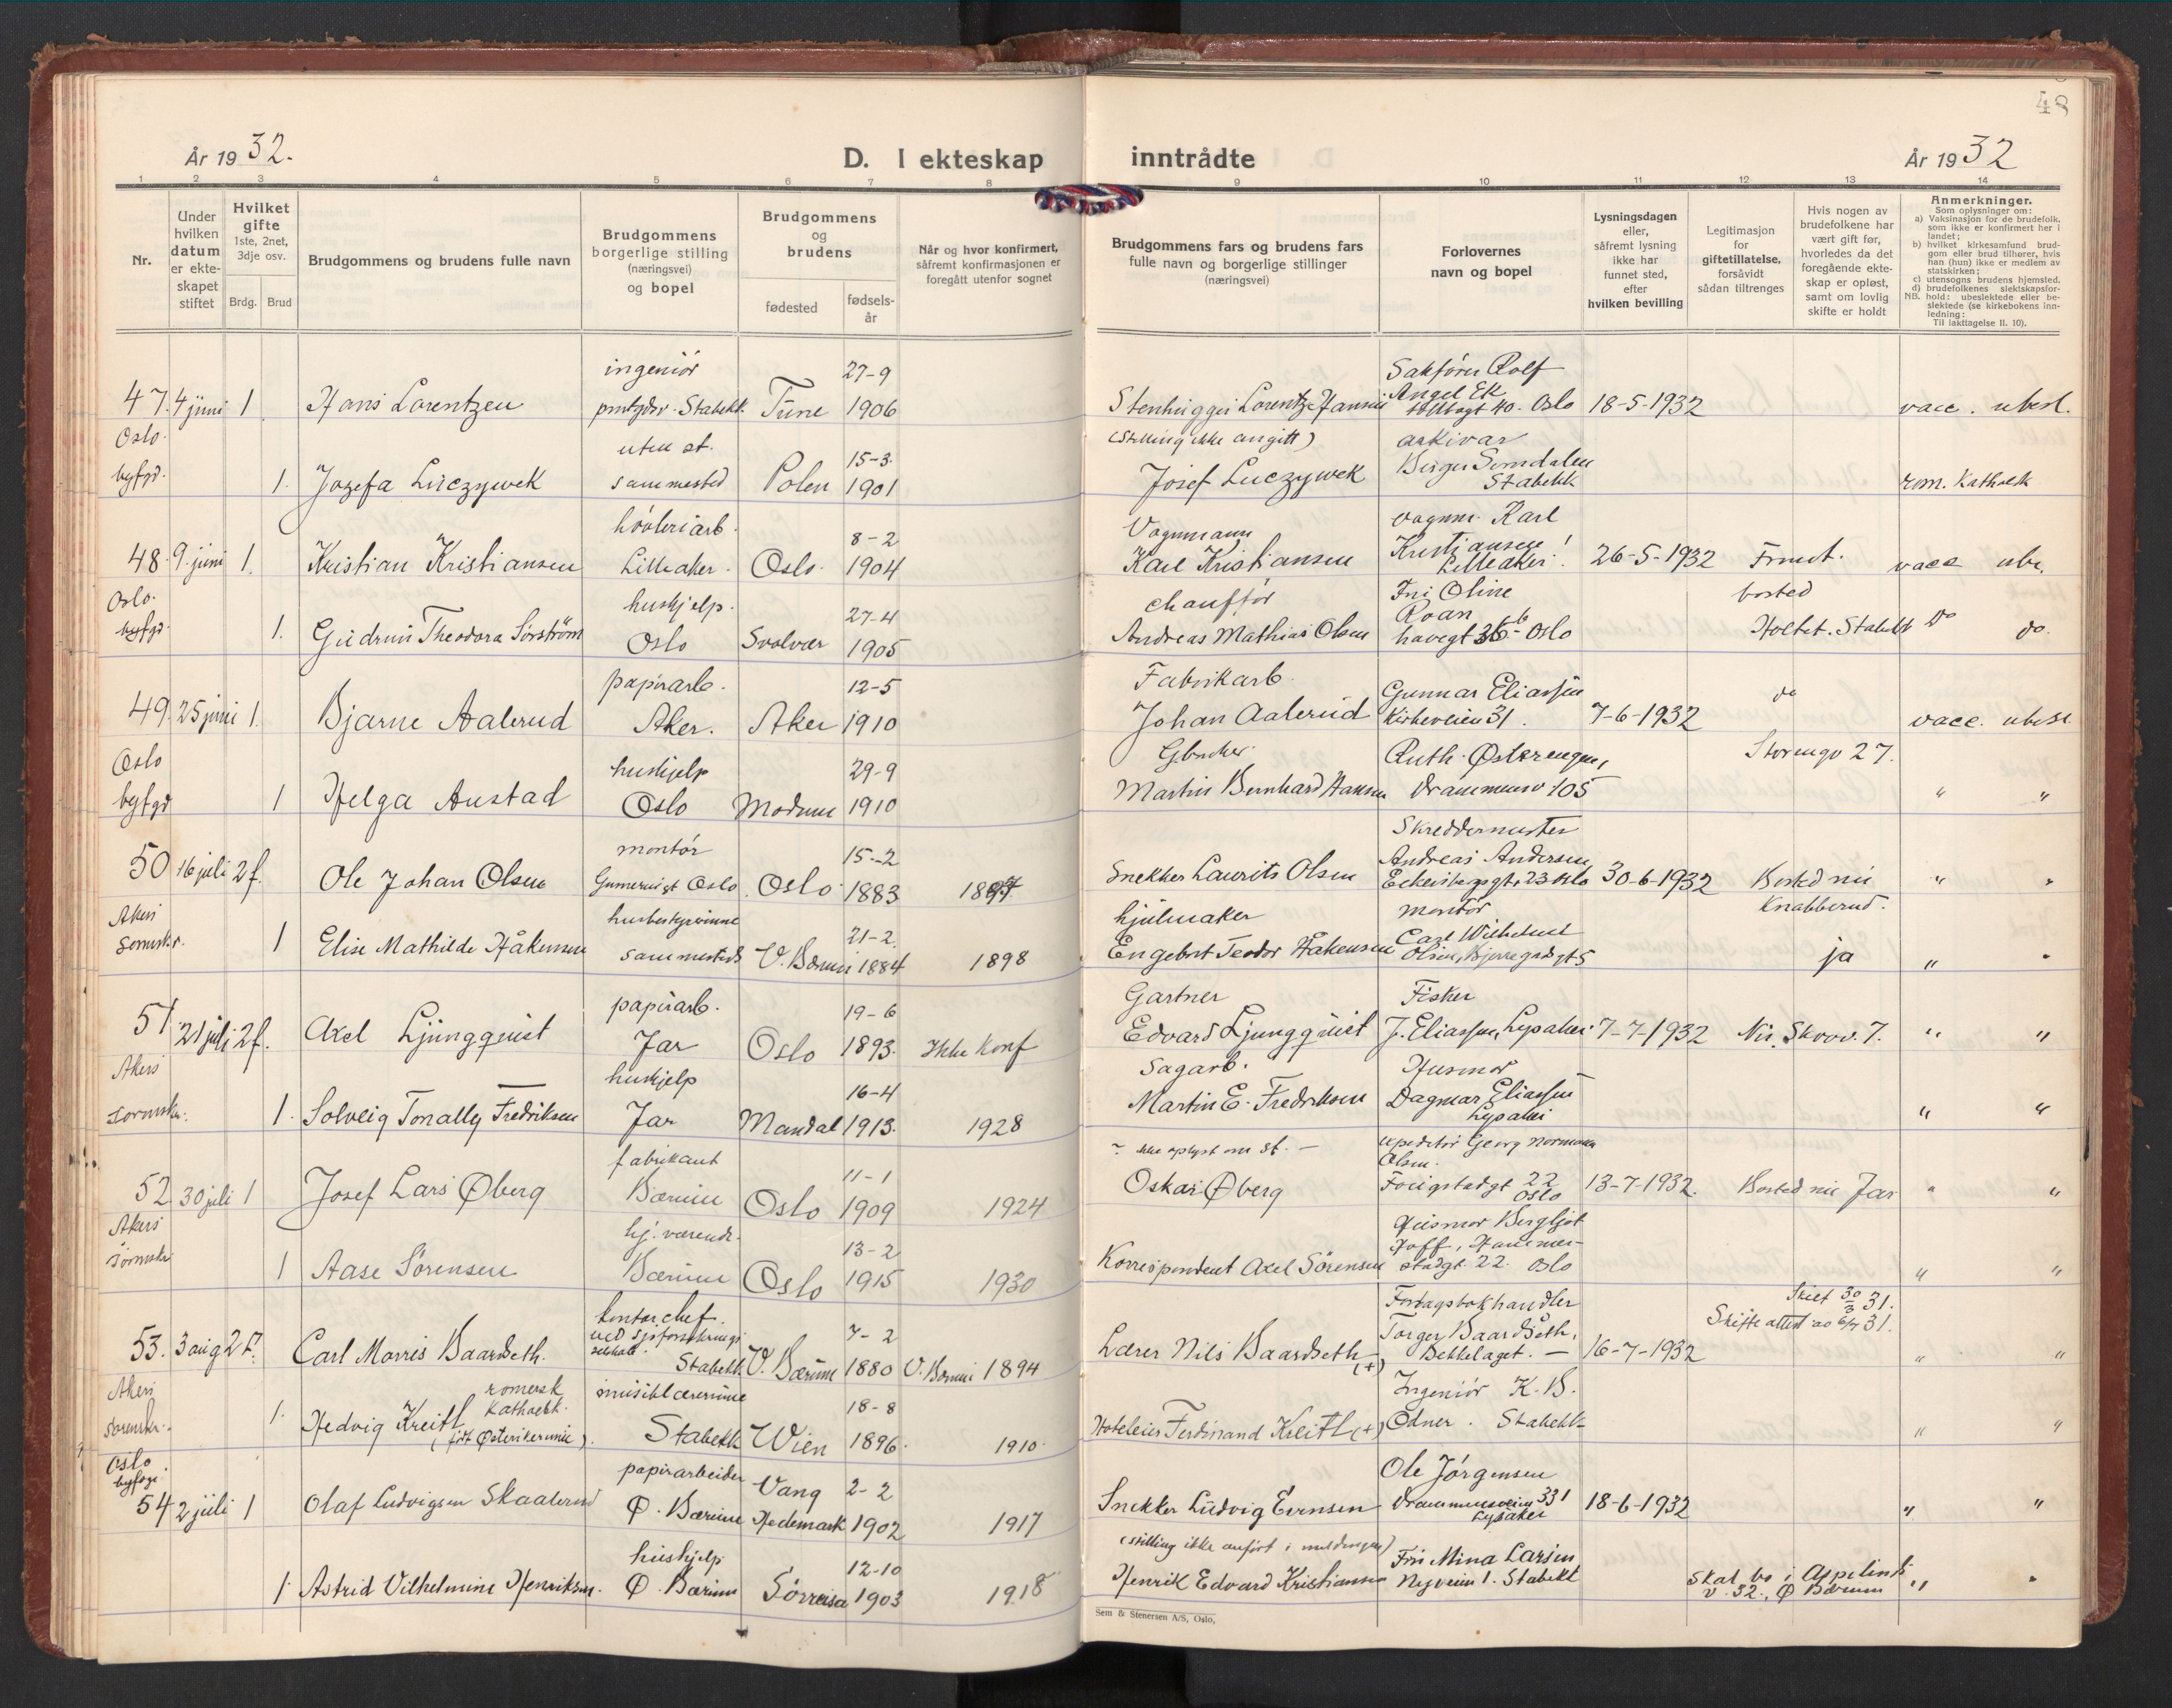 48
År 19 32.
D. I ekteskap inntrådte
År 19 32
1 2 3 4 5 6 7 8 9 10 11 12 13 14
Nr.
Under hvilken datum er ekteskapet stiftet
Hvilket gifte
1ste, 2net, 3dje osv.
Brdg. Brud
Brudgommens og brudens fulle navn
Brudgommens borgerlige stilling (næringsvei) og bopel
Brudgommens og brudens
fødested
fødsels-år
Når og hvor konfirmert, såfremt konfirmasjonen er foregått utenfor sognet
Brudgommens fars og brudens fars fulle navn og borgerlige stillinger (næringsvei)
Forlovernes navn og bopel
Lysningsdagen eller, såfremt lysning ikke har funnet sted, efter hvilken bevilling
Legitimasjon for giftetillatelse, forsåvidt sådan tiltrenges
Hvis nogen av brudefolkene har vært gift før, hvorledes da det foregående ekteskap er opløst, samt om lovlig skifte er holdt
Anmerkninger.
Som oplysninger om:
a) Vaksinasjon for de brudefolk. som ikke er konfirmert her i landet;
b) hvilket kirkesamfund brudgom eller brud tilhører, hvis han (hun) ikke er medlem av statskirken;
c) utensogns brudens hjemsted.
d) brudefolkenes slektskapsforhold: ubeslektede eller beslektede (se kirkebokens innledning:
NB. Til iakttagelse II. 10).
ingeniör 27-9 Sakförer Rolf
47. 4 juni 1 Hans Lorentzen Stabekk. Tune 1906 Stenhugger Lorentz Hansen Angel Ek tollbogt 40. Oslo 18-5-1932 vacc. ubesl.
Oslo uten st. 15-3 (Stilling ikke angitt) arkivar
byfgd. 1. Jozefa Luczywek sammested Polen 1901 Josef Luczywek Birger Stabekk rom. Katholsk
hövleriarb. 8-2 Vognmann vognm. Karl
48. 9. juni 1. Kristian Kristiansen Lilleaker. Oslo. 1904 Karl Kristiansen Kristiansen Lilleaker. 26-5-1932 vacc
Oslo. huskjelp. 27-4 chaufför Oline bosted
byfgd. 1. Gudrun Theodora Sörström Oslo Svolvær 1905 Andreas Mathias Olsen Roan havegt Oslo Holtet. Stabekk do do.
papirarb. 12-5 Fabrikarb. Gunnar Eliassen do
49. 25 juni 1. Bjarne Aalerud Aker. Aker 1910 Johan Aalerud Kirkeveien 31. 7-6-1932 vacc. ubesl.
Oslo huskjelp 29-9 Ruth Østerengen, 27.
byfgd 1 Helga Austad Oslo Modum 1910 Martin Bernhard Hansen Drammensv 105 " "
montör 15-2 Skreddermester
50 16 juli 2 f. Ole Johan Olsen Oslo. Oslo 1883 1897 Snekker Laurits Olsen Andreas Andersen, Eckersbergsgt. 23 Oslo 30-6-1932 Bosted nu Knabberud. " "
Akers husbestyrerinne 21-2 hjulmaker montör
Sorenskr. 1 Elise Mathilde Håkensen sammesteds V. Bærum 1884 1898 Engebret Teodor Håkensen Carl Wilhelm Olsen, ja " "
papirarb. 19-6 Gartner Fisker
51 21 juli 2 f. Axel Ljungquist Jar Oslo 1893. Ikke Konf Edvard Ljungquist J. Eliassen, Lysaker 7-7-1932 7. " "
Akers huskjelp 16-4 Sagarb. Husmor
Sorenskr. 1. Solveig Tomally Fredriksen Jar Mandal 1913. 1928 Martin E. Fredriksen Dagmar Eliassen Lysaker " "
fabrikant 11-1 ikke oplyst om st. Georg Norman Olsen.
52 30 juli 1 Josef Lars Øberg Bærum Oslo 1909 1924 Oskar Øberg 22 Oslo 13-7-1932. Bosted nu Jar " "
Akers hj. værende. 13-2 Husmor Bergljot
Sorenskr 1 Aase Sörensen Bærum Oslo 1915 1930 Korrespondent Axel Sörensen Hoff, Hammerstadgt. 22. Oslo " "
kontorchef. 7-2 Forlagsbokhandler Skilt 30/3 31.
53. 3 aug 2 f. Carl Morris Baardseth. Stabekk V. Bærum 1880 V. Bærum 1894 Lærer Nils Baardseth (+) Torger Baardseth. Bekkelaget. 16-7-1932 Skifte attest 31. " "
Akers romersk Katholsk. musiklærerinne 18-8 Ingeniör K. B.
Sorenskr. 1. Hedvig Kreitl (födt Østerikerinne). Stabekk Wien 1896. 1910. Hoteleier Ferdinand Kreitl (+) Ödner. Stabekk " "
Oslo byfogd. papirarbeider Vang 2-2 Ole Jörgensen
54 2 juli 1 Olaf Ludvigsen Skaalerud Ø. Bærum Hedemark 1902 1917 Snekker Ludvig Evensen Drammensveien 331 Lysaker 18-6-1932 " "
huskjelp 12-10 (stilling ikke anfört i meldingen) Mina Larsen
1 Astrid Vilhelmine Henriksen. Ø. Bærum Sörreisa 1903 1918 Henrik Edvard Kristiansen Nyveien 1. Stabekk Skal bo i v. 32., Ø Bærum " "
Sem & Stenersen A/S, Oslo,